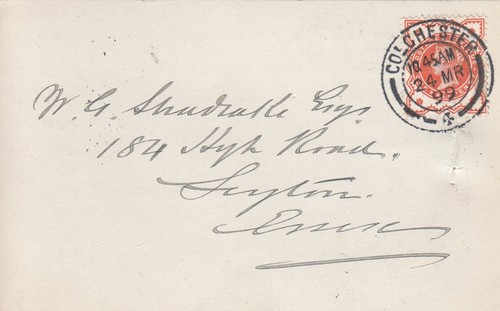 COLCHESTER
10.45AM
24 MR
99
W. G. Shudrake Esq.
184 Hyh Road.
Leyton.
Essex